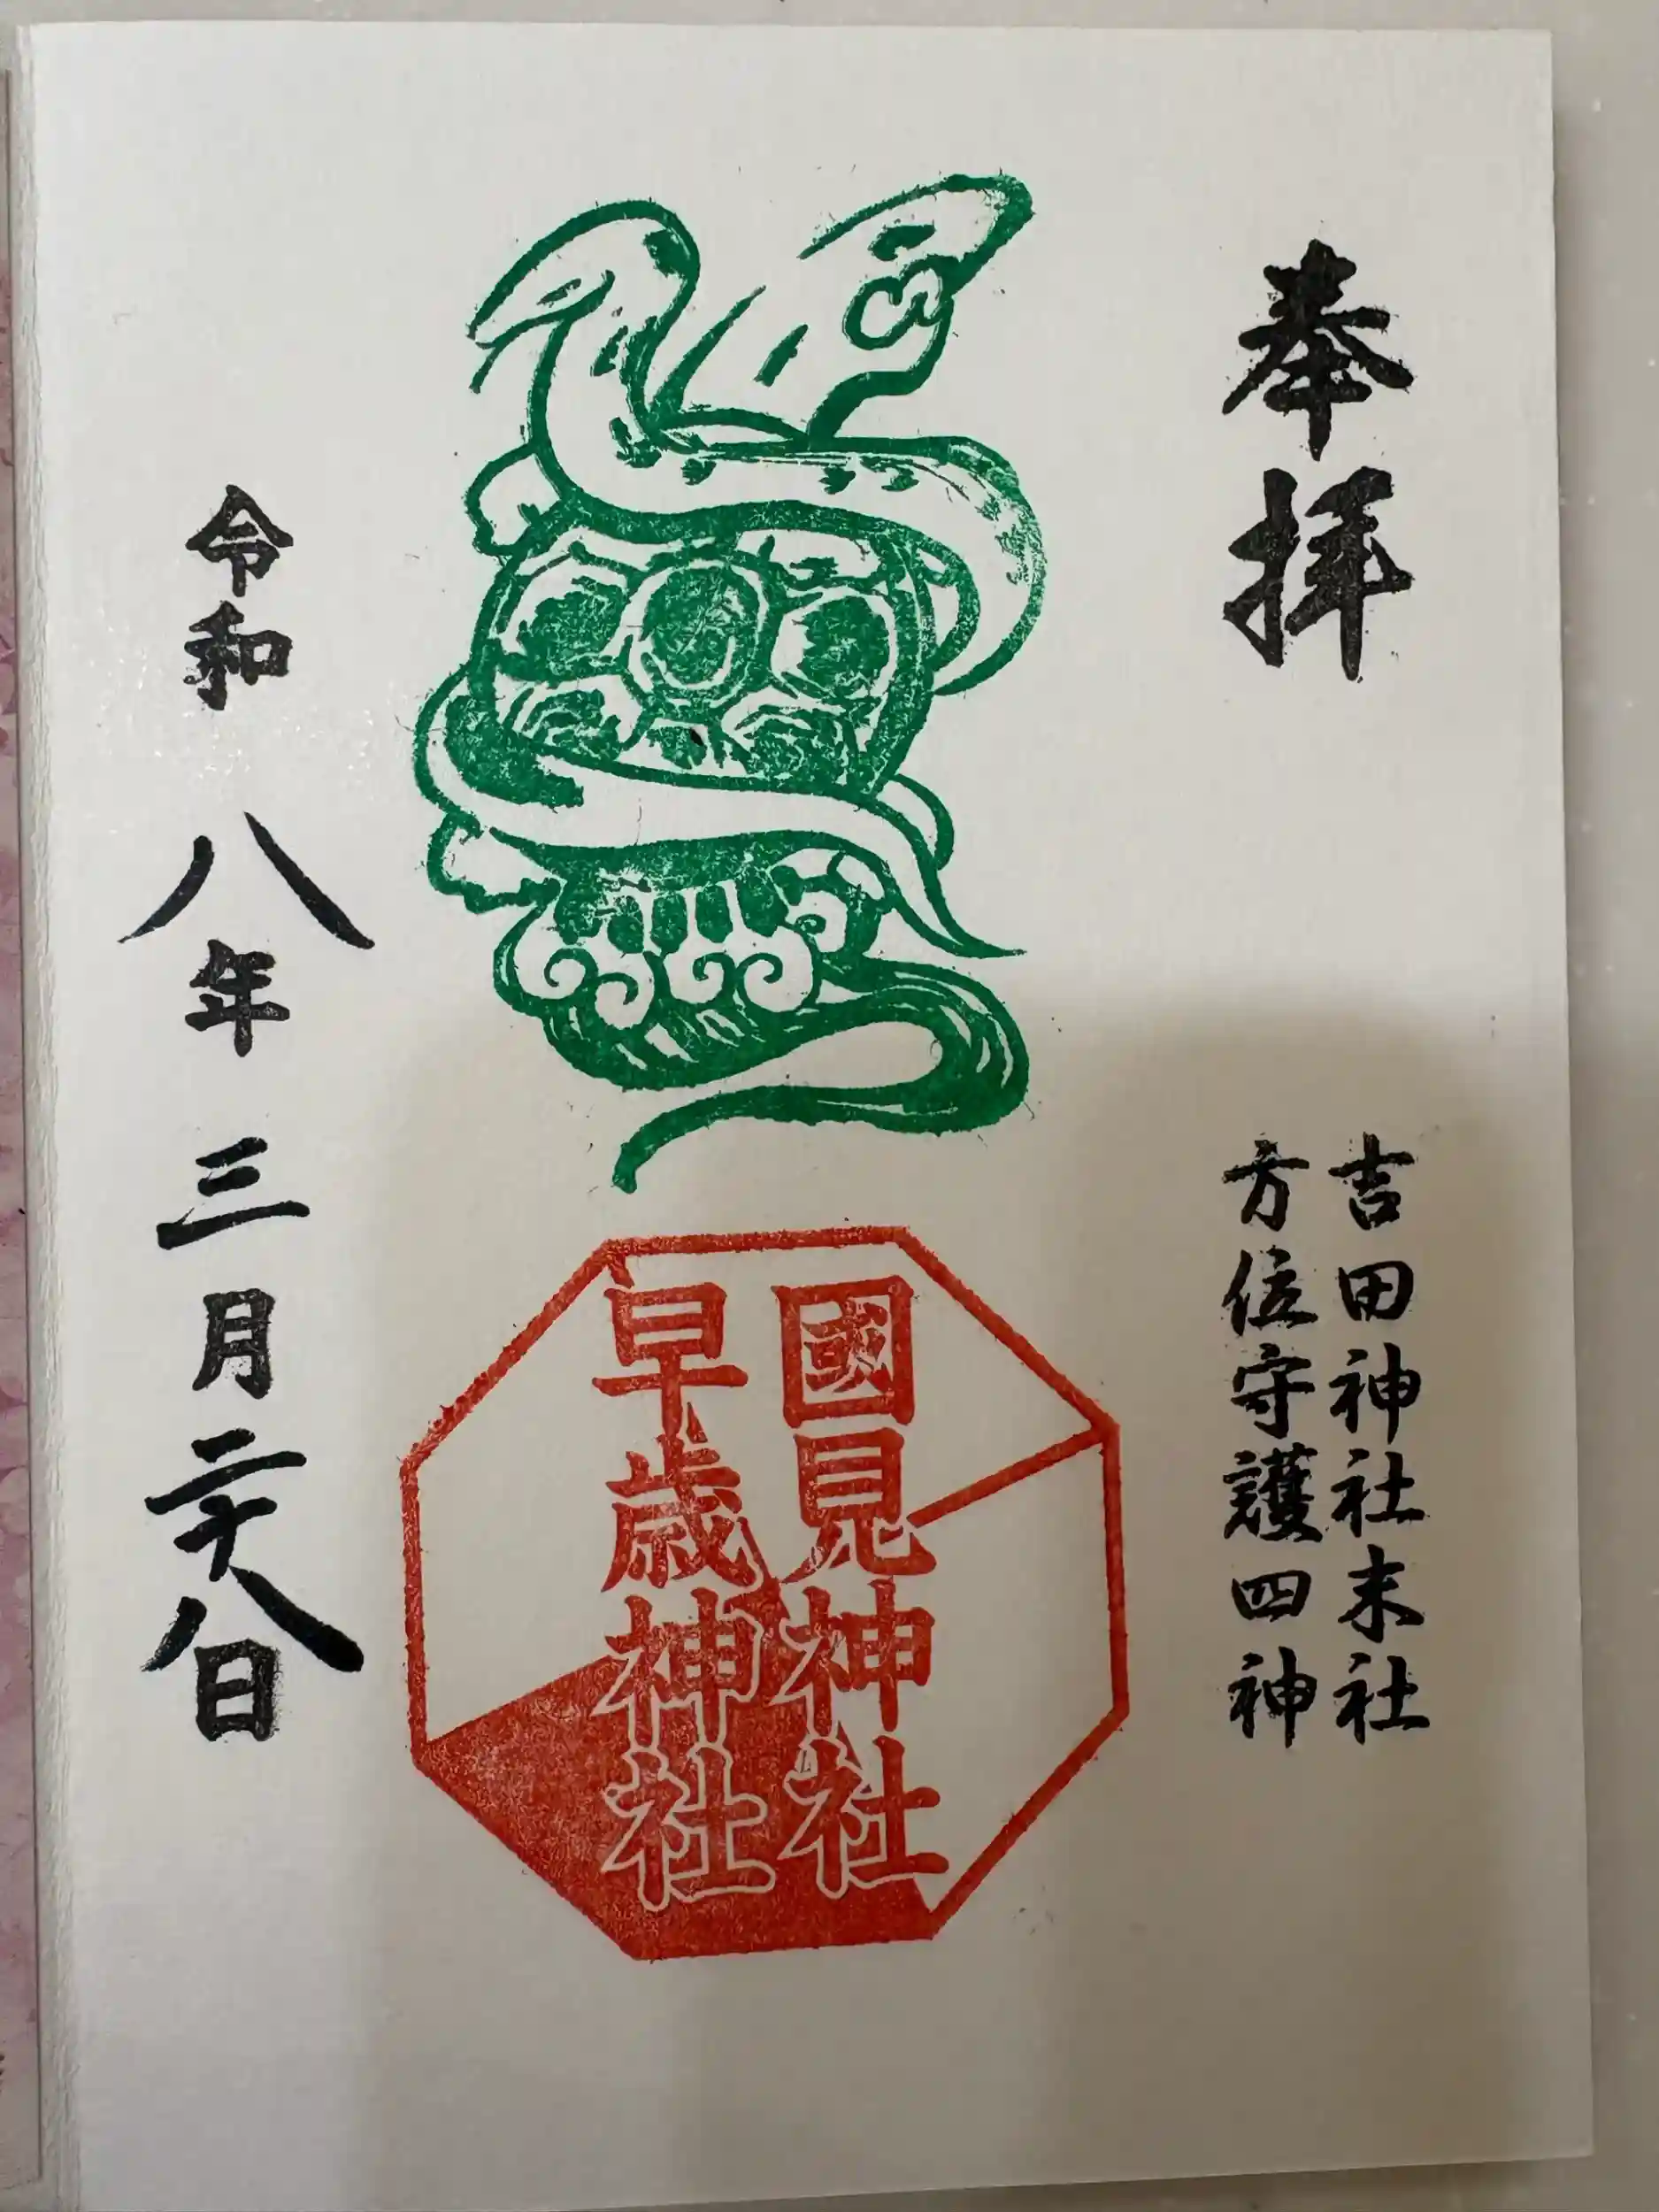 奉拝
吉田神社末社
方位守護四神
國見神社
早歳神社
令和八年三月二十八日